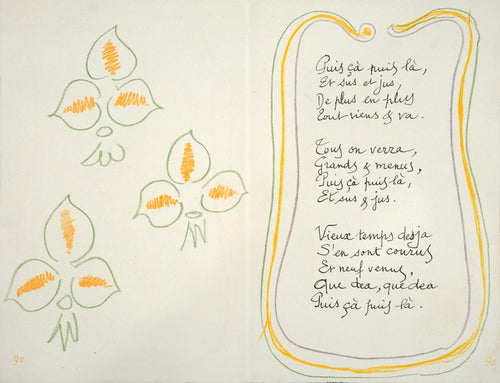 Puis çà puis là,
Et sus et jus,
De plus en plus
Tout viens & va.
Tous on verra,
Grands & menus,
Puis çà puis là,
Et sus & jus.
Vieux temps desja
S'en sont courus
Et neuf venus,
Que dea, que dea
Puis çà puis là.
90